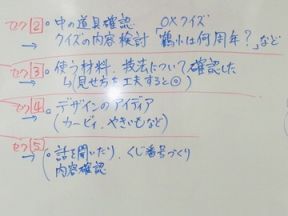 セク[2]。中の道具確認 OXクイズ
→ クイズの内容検討「鶴小は何周年?」など
セク[3]。使う材料、技法について確認した
→ (見せ方を工夫すると◎)
セク[4]。デザインのアイディア
→ (カービィ、やきいもなど)
セク[5]
→ 。話を聞いたり、くじ番号づくり
内容確認